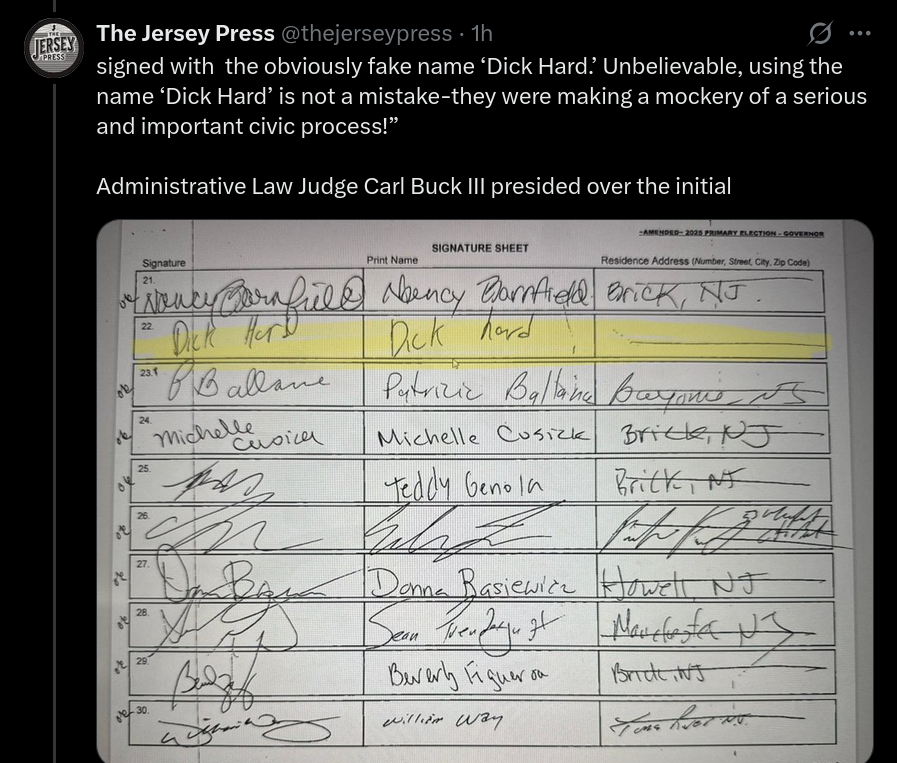 The Jersey Press @thejerseypress · 1h
signed with the obviously fake name ‘Dick Hard.’ Unbelievable, using the
name ‘Dick Hard’ is not a mistake-they were making a mockery of a serious
and important civic process!”
Administrative Law Judge Carl Buck III presided over the initial
THE JERSEY PRESS
-AMENDED- 2025 PRIMARY ELECTION - GOVERNOR
SIGNATURE SHEET
Signature Print Name Residence Address (Number, Street, City, Zip Code)
21. Nancy Barnfield Nancy Barnfield Brick, NJ.
22. Dick Hard Dick hard
23. P Ballane Patrizie Bayonne, NJ
24. Michelle Cusick Michelle Cusick Brick, NJ
25. Teddy Genola Brick, NJ
26.
27. Donna Basiewicz Howell, NJ
28. Sean Manchester NJ
29. Beverly Figueroa Brick, NJ
30. William Way Toms River NJ